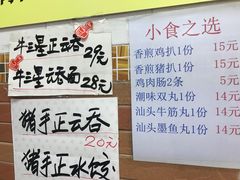 牛三星正云吞
29元
牛三星云吞面
28元
猪手正云吞
20元
猪手正水饺
小食之选
香煎鸡扒1份 15元
香煎猪扒1份 15元
鸡肉肠2条 5元
潮味双丸1份 14元
汕头牛筋丸1份 14元
汕头墨鱼丸1份 14元